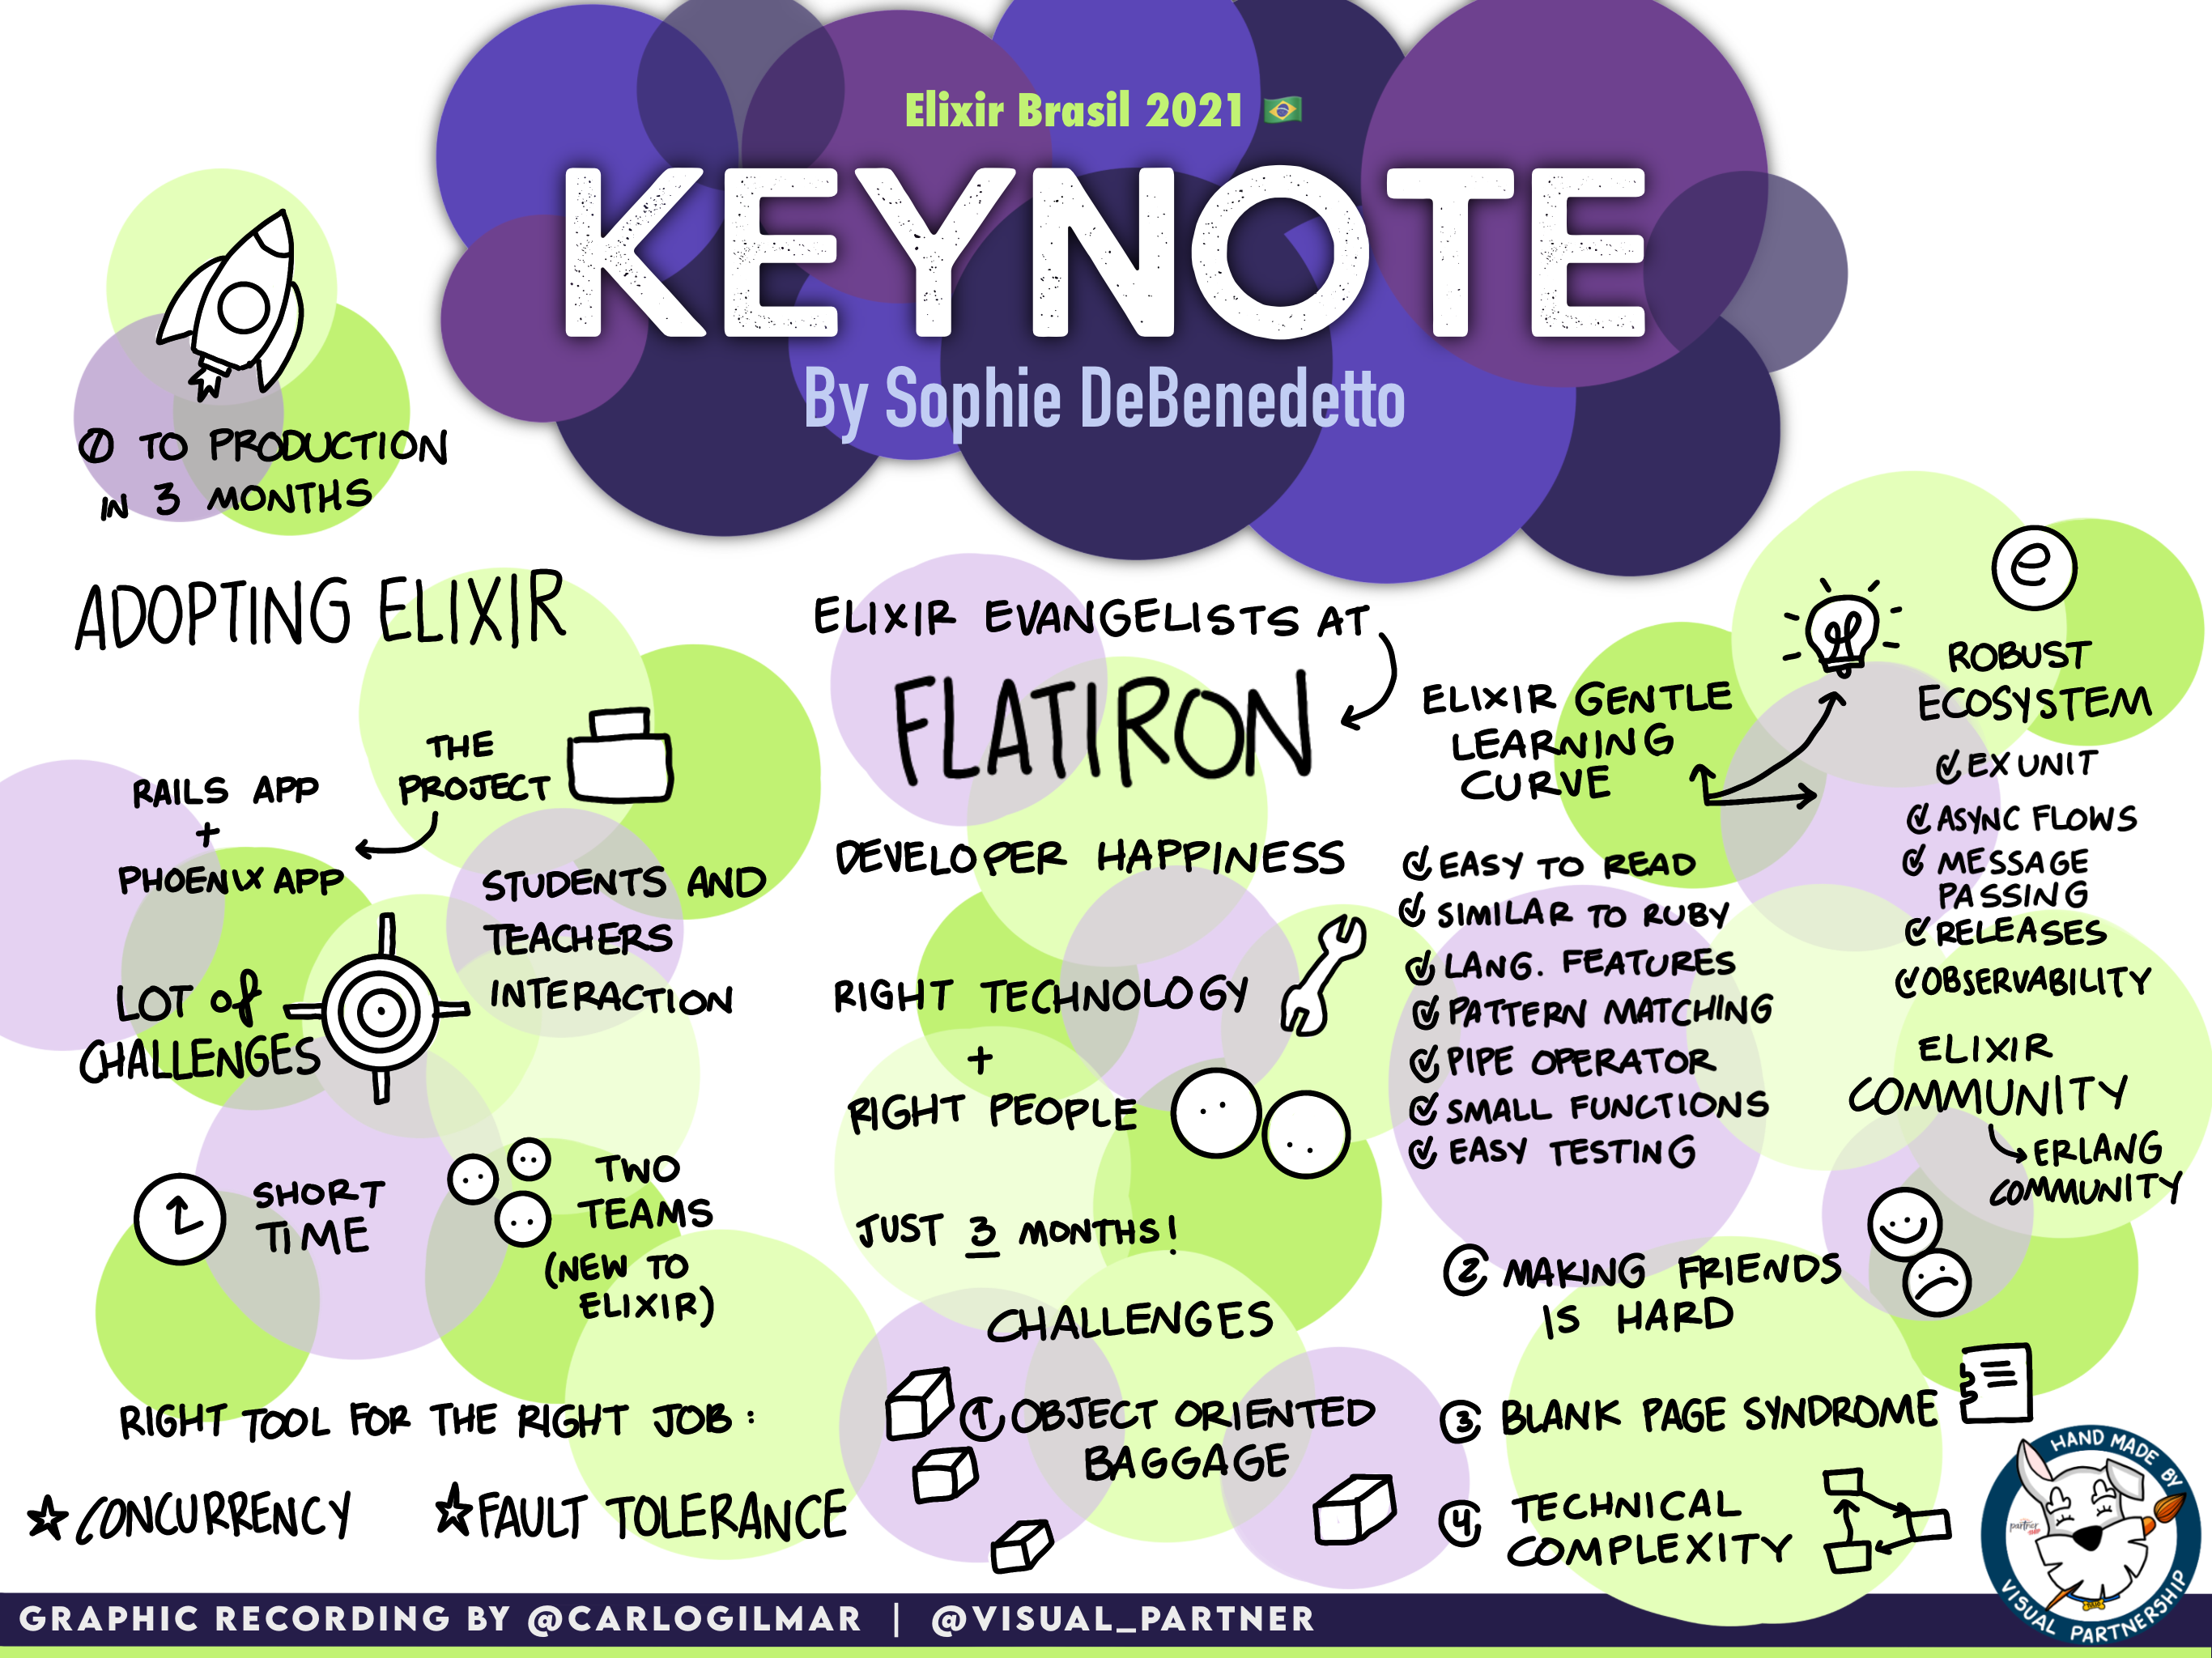 Elixir Brasil 2021
KEYNOTE
By Sophie DeBenedetto
0 TO PRODUCTION
IN 3 MONTHS
ADOPTING ELIXIR
THE
PROJECT
RAILS APP
+
PHOENIX APP
STUDENTS AND
TEACHERS
INTERACTION
LOT of
CHALLENGES
SHORT
TIME
TWO
TEAMS
(NEW TO
ELIXIR)
RIGHT TOOL FOR THE RIGHT JOB:
CONCURRENCY
FAULT TOLERANCE
ELIXIR EVANGELISTS AT
FLATIRON
DEVELOPER HAPPINESS
RIGHT TECHNOLOGY
+
RIGHT PEOPLE
JUST 3 MONTHS!
CHALLENGES
1 OBJECT ORIENTED
BAGGAGE
ELIXIR GENTLE
LEARNING
CURVE
EASY TO READ
SIMILAR TO RUBY
LANG. FEATURES
PATTERN MATCHING
PIPE OPERATOR
SMALL FUNCTIONS
EASY TESTING
2 MAKING FRIENDS
IS HARD
3 BLANK PAGE SYNDROME
4 TECHNICAL
COMPLEXITY
e
ROBUST
ECOSYSTEM
EX UNIT
ASYNC FLOWS
MESSAGE
PASSING
RELEASES
OBSERVABILITY
ELIXIR
COMMUNITY
ERLANG
COMMUNITY
HAND MADE BY
partner
VISUAL PARTNERSHIP
GRAPHIC RECORDING BY @CARLOGILMAR | @VISUAL_PARTNER